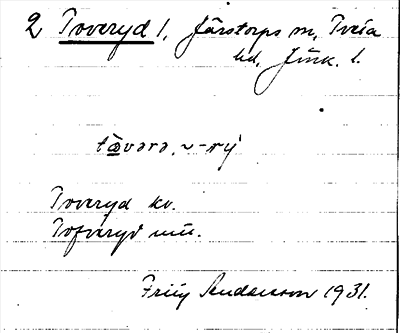 2 Toveryd 1, Järstorps sn, Tveta
hd, Jönk. l.
tåvərə, ~-rỳ
Toveryd kv.
Tofveryd
Andersson 1931.